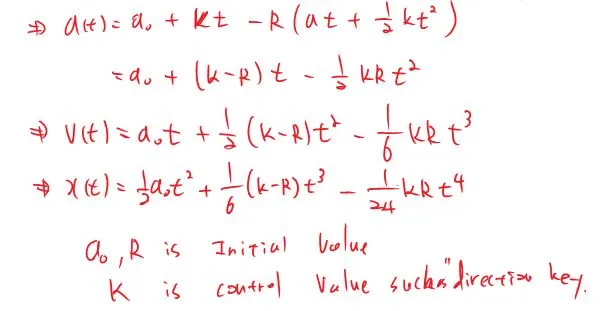 ⇒ a(t) = a₀ + kt − R(at + ½kt²)
= a₀ + (k−R)t − ½kRt²
⇒ V(t) = a₀t + ½(k−R)t² − 1/6 kRt³
⇒ x(t) = ½a₀t² + 1/6(k−R)t³ − 1/24 kRt⁴
a₀, R is Initial Value
K is control Value such as "direction key.